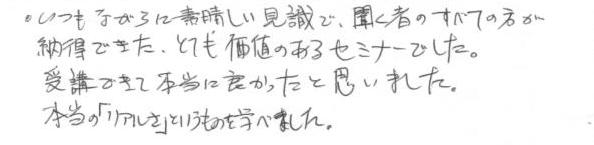 。いつもながらに素晴しい見識で、聞く者のすべての方が
納得できた、とても価値のあるセミナーでした。
受講できて本当に良かったと思いました。
本当の「リアルさ」というものを学べました。